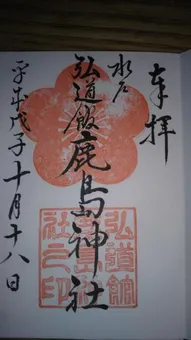 奉拝
水戸
弘道館鹿島神社
平成戊子十月十八日
弘道館
鹿島神
社之印